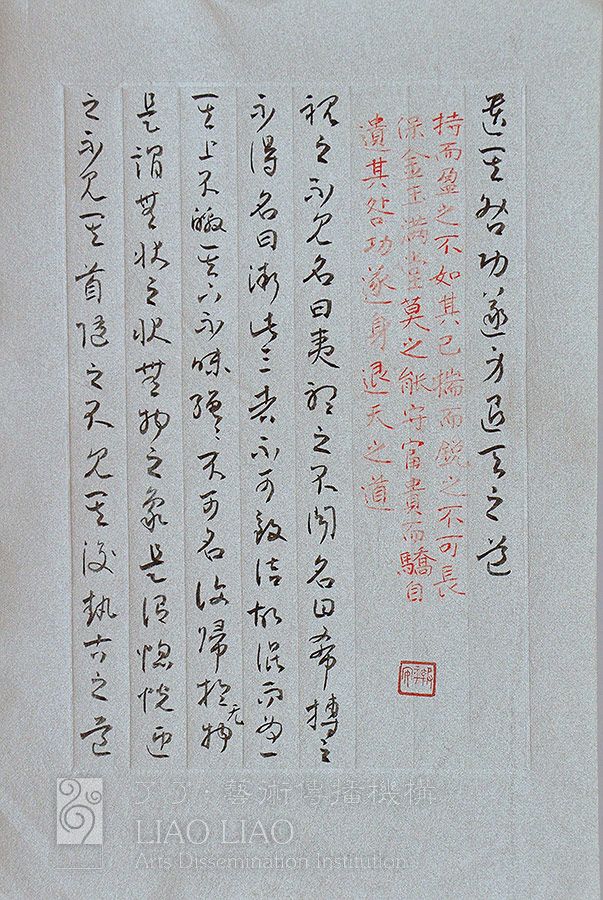 遺其咎功遂身退天之道
持而盈之不如其已揣而銳之不可長
保金玉滿堂莫之能守富貴而驕自
遺其咎功遂身退天之道
視之不見名曰夷聽之不聞名曰希摶之
不得名曰微此三者不可致詰故混而為一
其上不皦其下不昧繩々不可名復歸於无物
是謂無狀之狀無物之象是謂惚恍迎
之不見其首隨之不見其後執古之道
了了·藝術傳播機構
LIAO LIAO
Arts Dissemination Institution